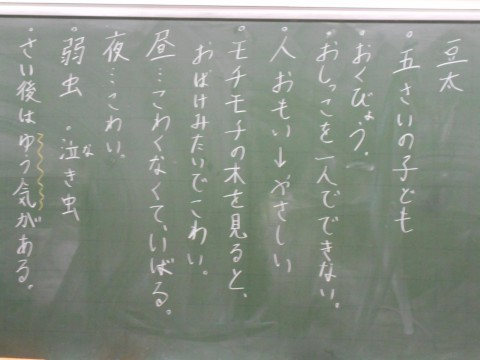 豆太
・五さいの子ども
・おくびょう。
・おしっこを一人でできない。
・人おもい→やさしい
・モチモチの木を見ると、
おばけみたいでこわい。
昼…こわくなくて、いばる。
夜…こわい。
・弱虫 ・泣き虫
な
・さい後はゆう気がある。